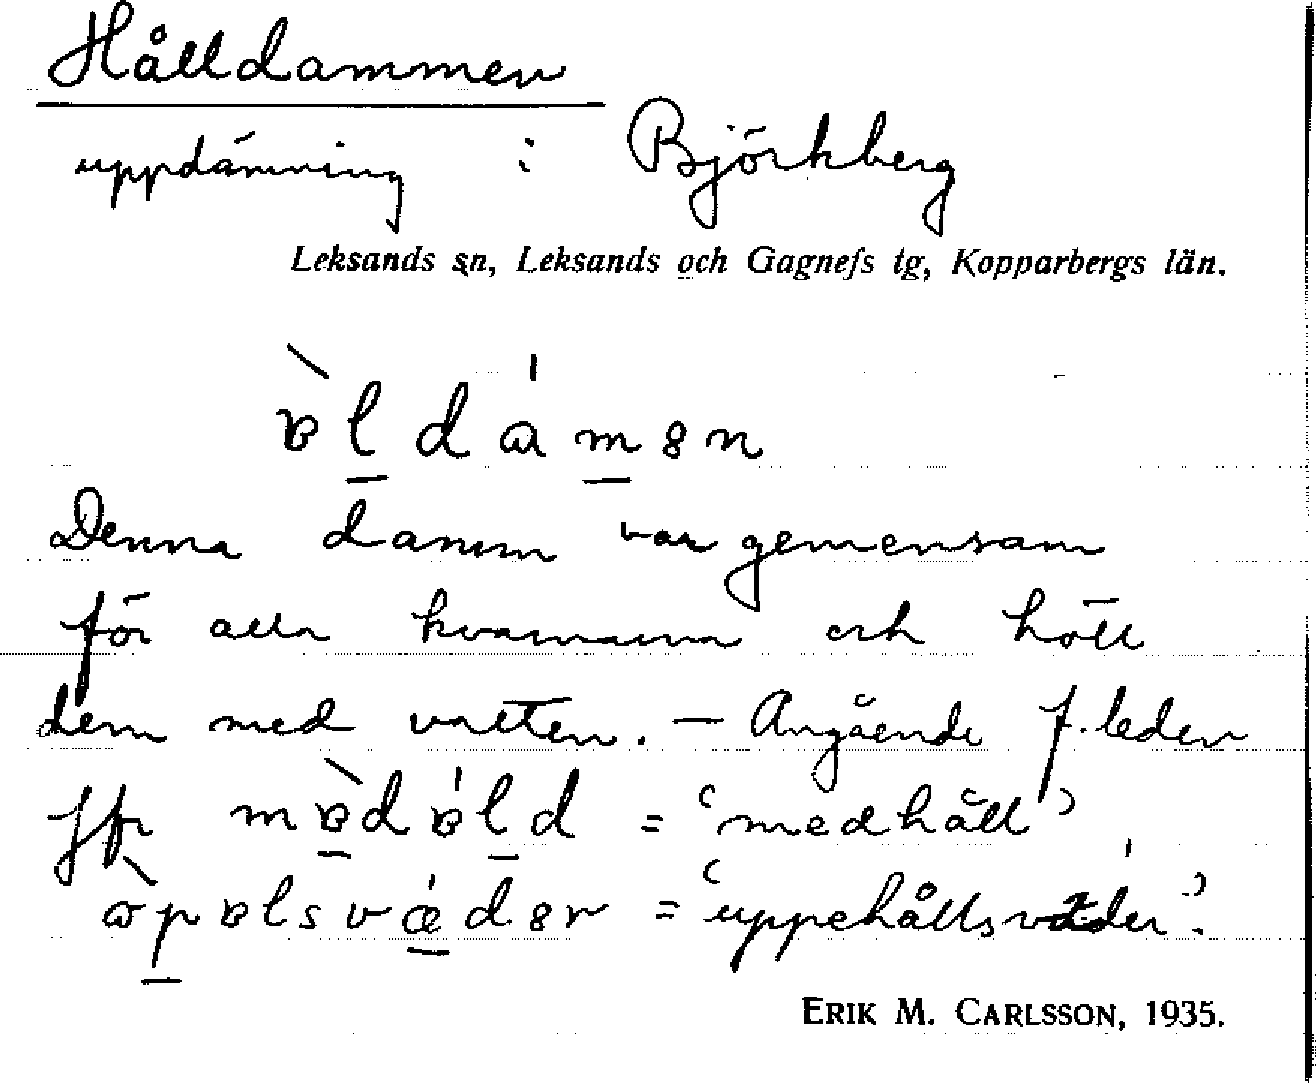 Hålldammen
uppdämning i Björkberg
Leksands sn, Leksands och Gagnefs tg, Kopparbergs län.
Denna damm var gemensam
för alla kvarnarna och höll
dem med vatten. – Angående f. leden
jfr = 'medhåll'
= 'uppehållsväder'.
ERIK M. CARLSSON, 1935.